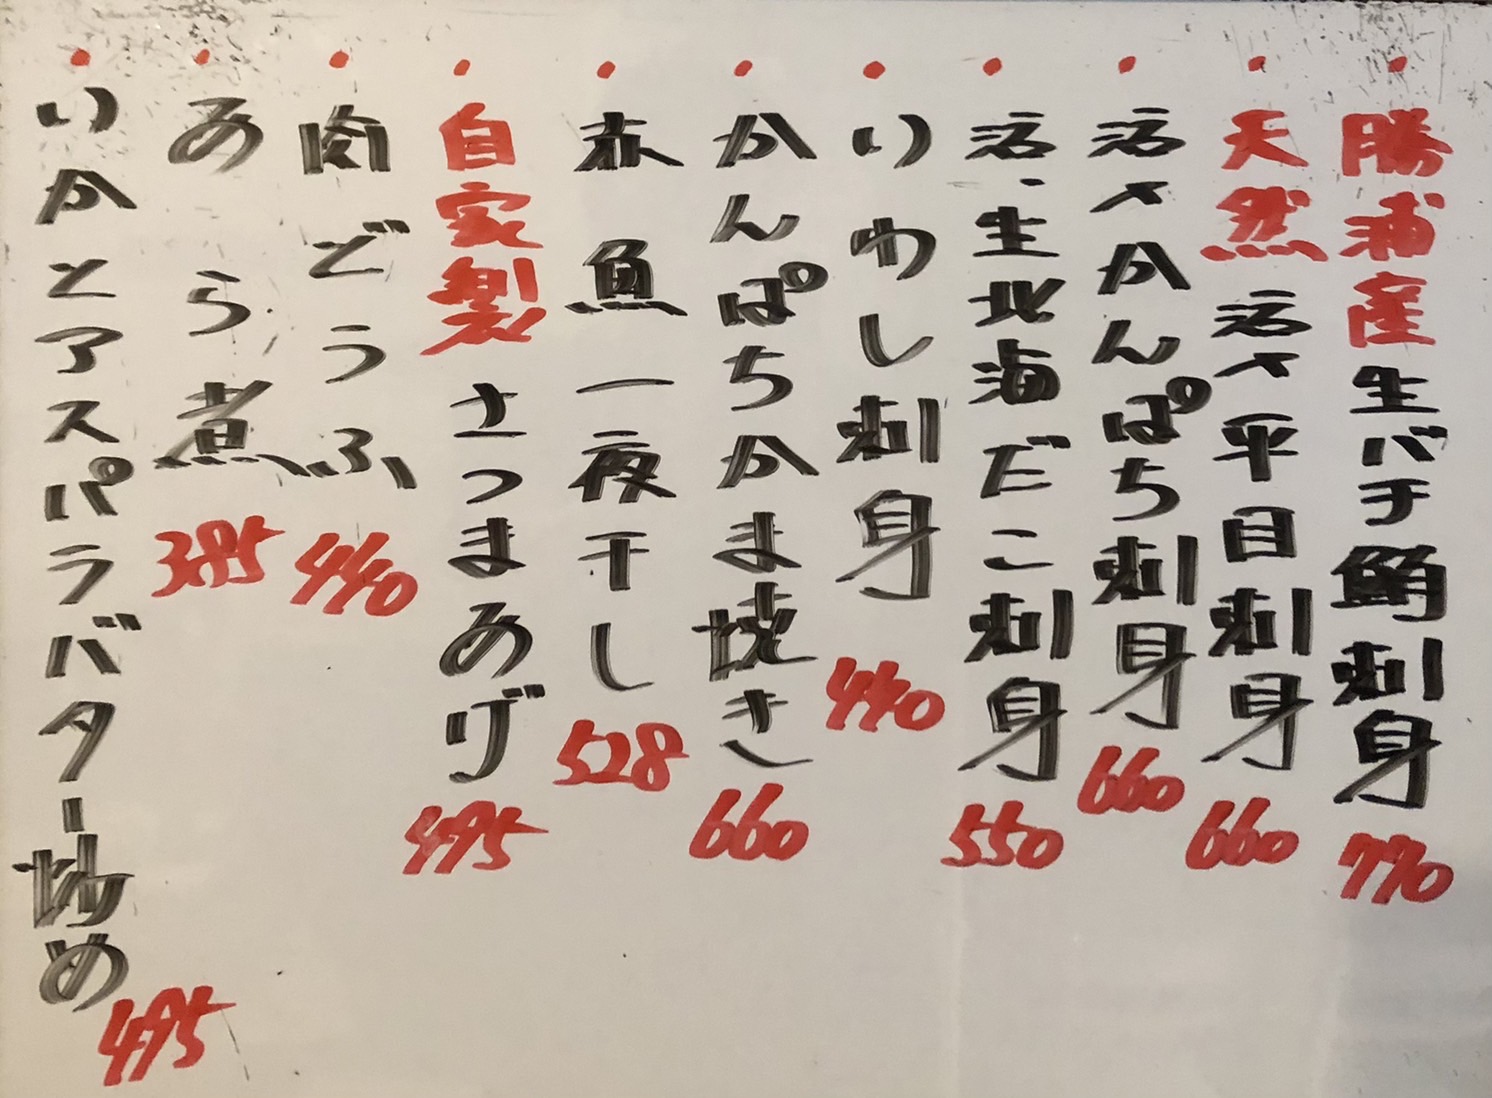 ・勝浦産生バチ鮪刺身 770
・天然活〆平目刺身 660
・活〆かんぱち刺身 660
・活、生北海だこ刺身 550
・いわし刺身 440
・かんぱちかま焼き 660
・赤魚一夜干し 528
・自家製さつまあげ 495
・肉どうふ 440
・あら煮 385
・いかとアスパラバター炒め 495